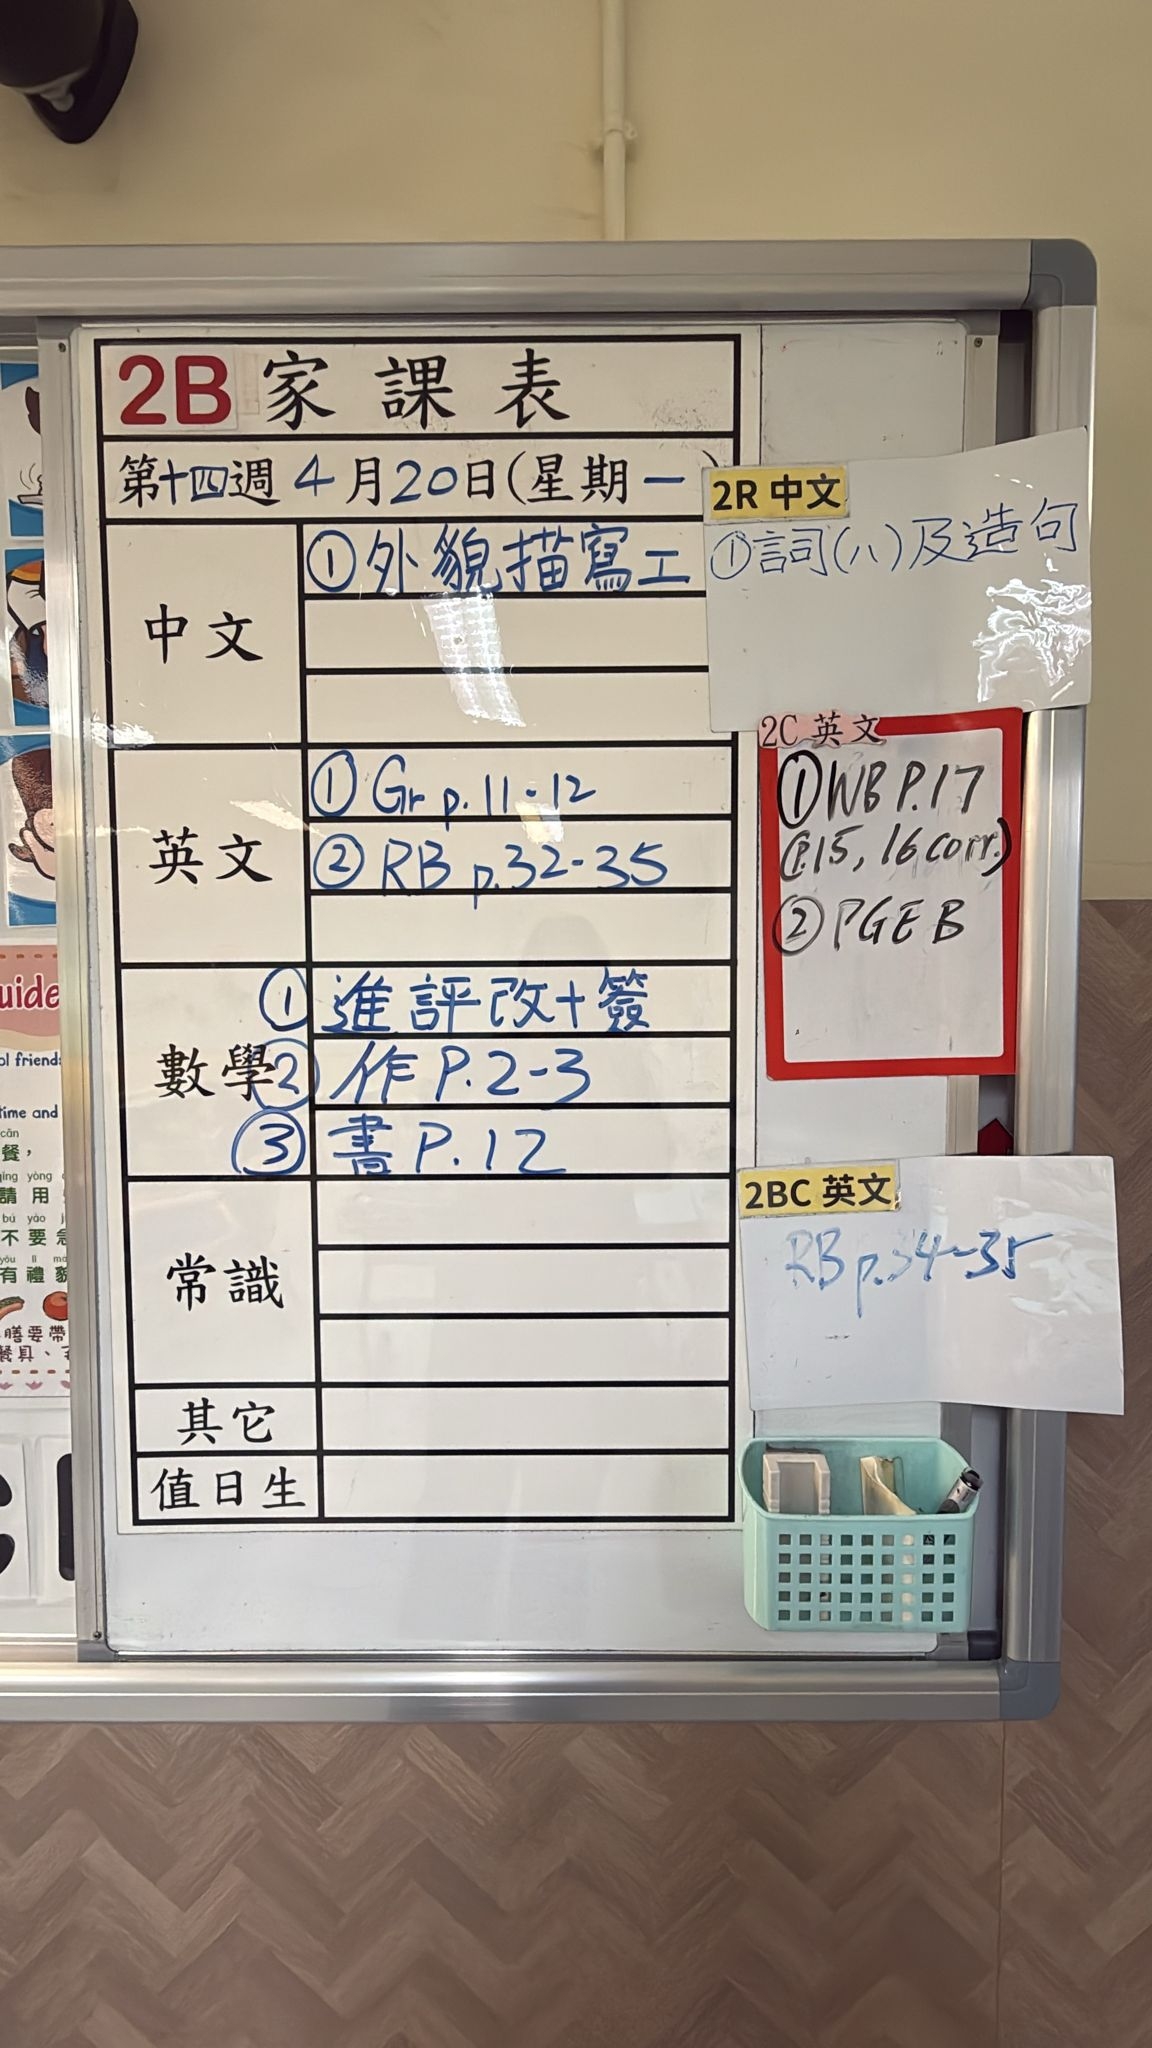 2B 家課表
第十四週 4月20日(星期一
中文
①外貌描寫工
英文
①Gr p.11-12
②RB p.32-35
數學
①進評改+簽
②作P.2-3
③書P.12
常識
其它
值日生
2R 中文
①詞(八)及造句
2C 英文
①WB P.17
(P.15, 16 corr.)
②PGEB
2BC 英文
RB p.34-35
uide
ol friends
time and
cān
餐，
qǐng yòng
請用
bú yào
不要急
yǒu lǐ
有禮貌
膳要帶
餐具、